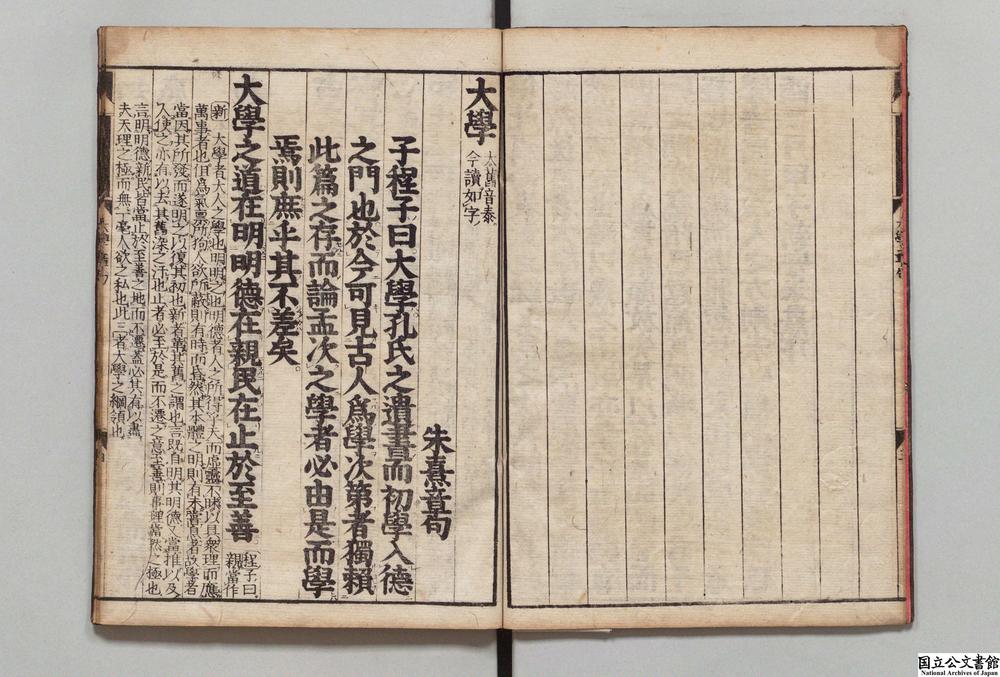 大學
大舊音泰
今讀如字
朱熹章句
子程子曰大學孔氏之遺書而初學入德
之門也於今可見古人爲學次第者獨賴
此篇之存而論孟次之學者必由是而學
焉則庶乎其不差矣
大學之道在明明德在親民在止於至善
程子曰
親當作
新 大學者大人之學也明明之也明德者人之所得乎天而虛靈不昧以具衆理而應
萬事者也但爲氣稟所拘人欲所蔽則有時而昏然其本體之明則有未嘗息者故學者
當因其所發而遂明之以復其初也新者革其舊之謂也言旣自明其明德又當推以及
人使之亦有以去其舊染之汙也止者必至於是而不遷之意至善則事理當然之極也
言明明德新民皆當止於至善之地而不遷蓋必其有以盡
夫天理之極而無一毫人欲之私也此三者大學之綱領也
国立公文書館
National Archives of Japan